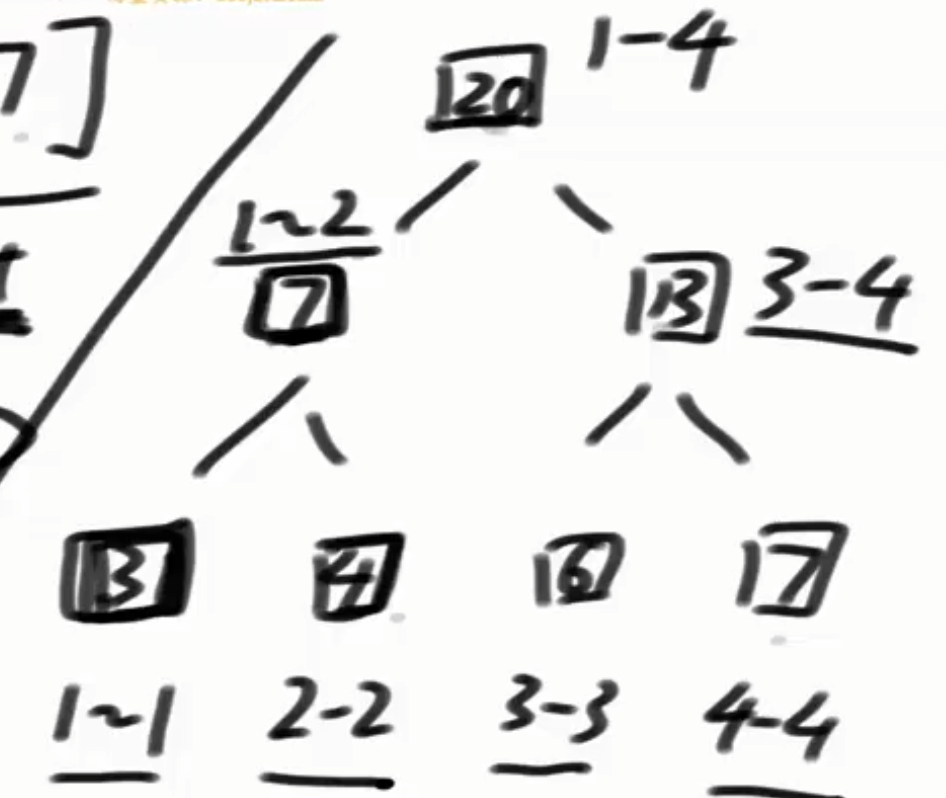 7]
20 1-4
1~2
7
13 3-4
3 4 6 7
1~1 2-2 3-3 4-4